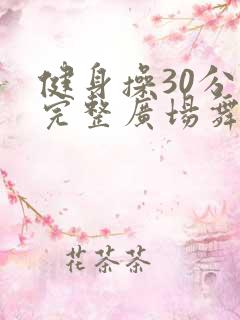 健身操30分
完整廣場舞
花茶茶